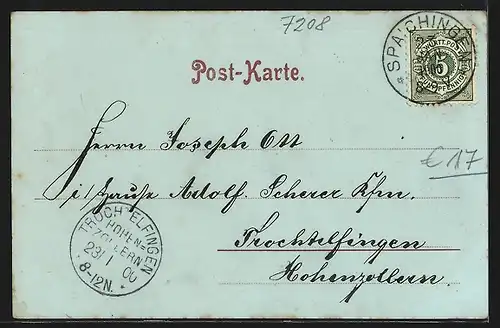 7208
SPAICHINGEN
K. WÜRTT. POST
5
FÜNF PFENNIG
Post-Karte.
Herrn Joseph Ott
€ 17
i/Hause Adolf. Scherer Kfm.
Trochtelfingen
Hohenzollern.
TROCHTELFINGEN
HOHEN-
ZOLLERN
23/1 00
8-12N.